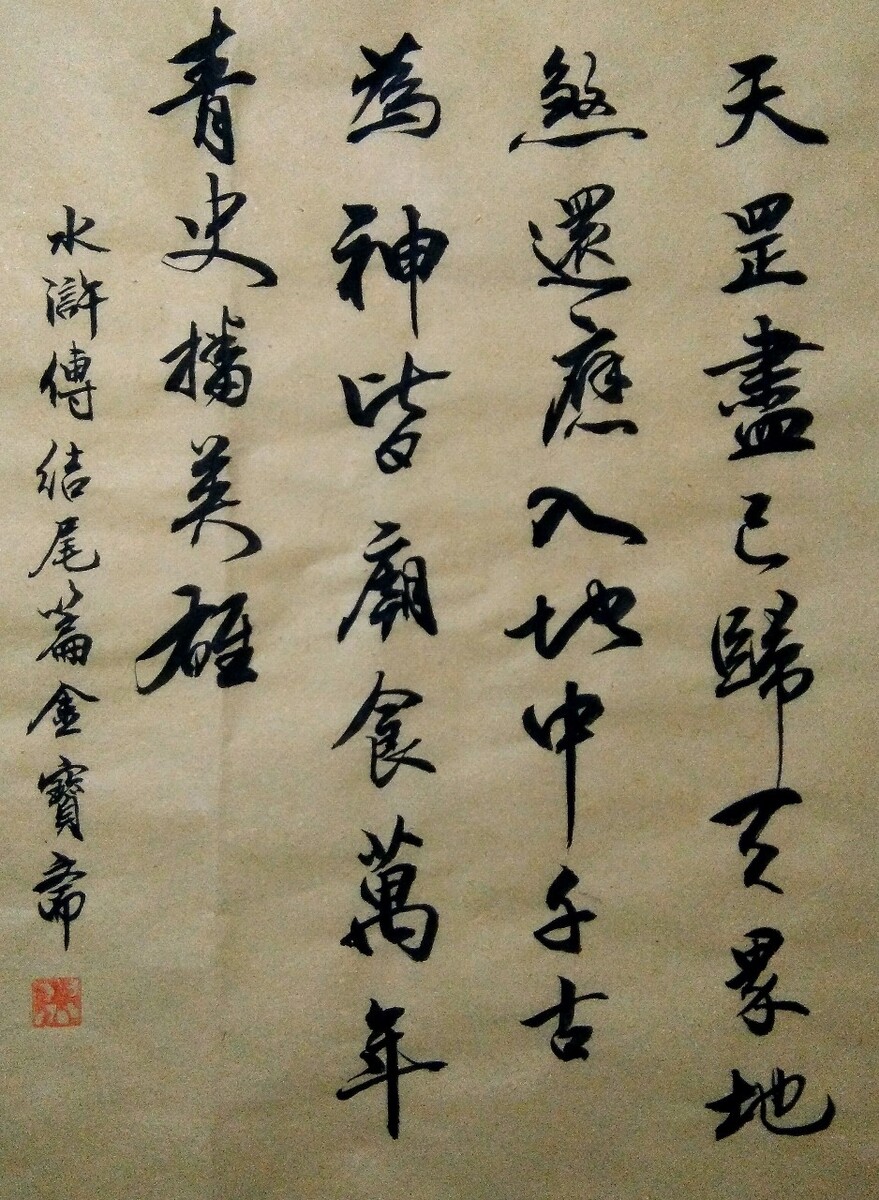 天罡盡已歸天界地
煞還應入地中千古
為神皆廟食萬年
青史播英雄
水滸傳結尾篇金寶齋